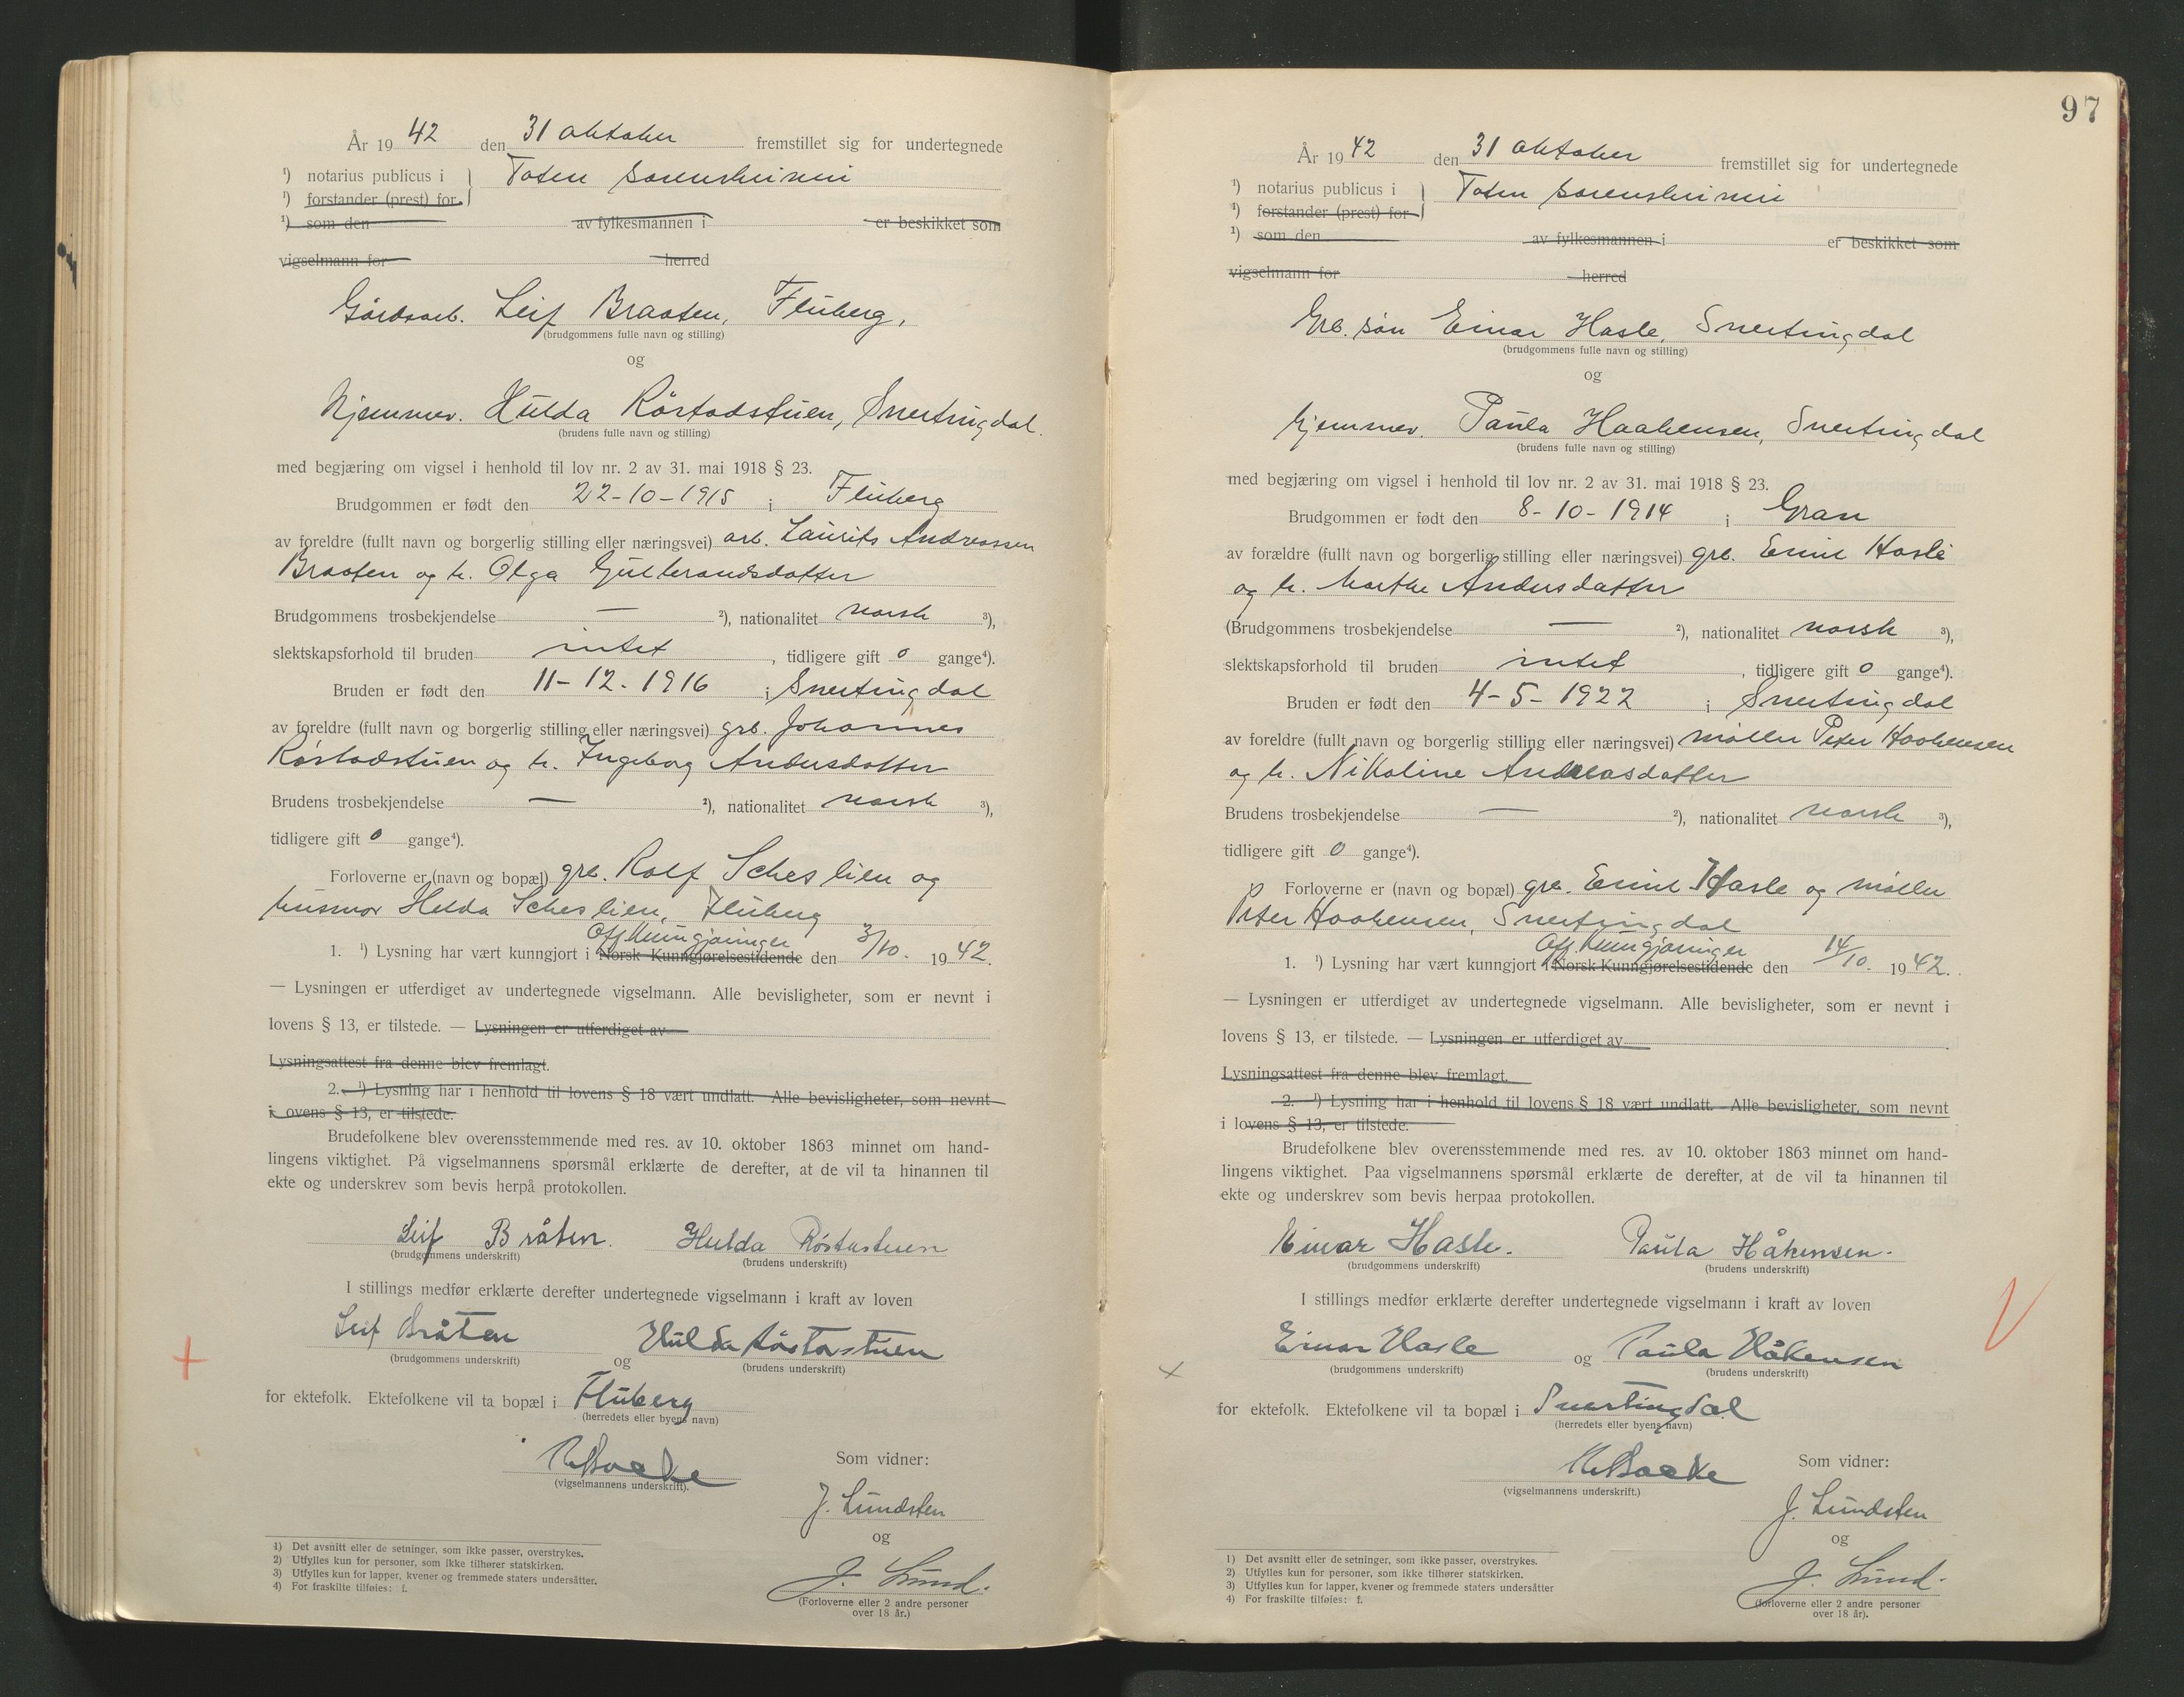 År 19 42 den 31 oktober fremstillet sig for undertegnede
¹) notarius publicus i } Toten sorenskriveri
¹) forstander (prest) for
¹) som den av fylkesmannen i er beskikket som
vigselmann for herred
Gårdsarb. Leif Braaten, Fluberg,
(brudgommens fulle navn og stilling)
og
hjemmev. Hulda Röstadstuen, Snertingdal.
(brudens fulle navn og stilling)
med begjæring om vigsel i henhold til lov nr. 2 av 31. mai 1918 § 23.
Brudgommen er født den 22-10-1915 i Fluberg
av foreldre (fullt navn og borgerlig stilling eller næringsvei) arb. Laurits Andreassen
Braaten og h. Olga Gulbrandsdatter
Brudgommens trosbekjendelse — ²), nationalitet norsk ³),
slektskapsforhold til bruden intet, tidligere gift 0 gange⁴).
Bruden er født den 11-12-1916 i Snertingdal
av foreldre (fullt navn og borgerlig stilling eller næringsvei) grb. Johannes
Röstadstuen og h. Ingeborg Andersdatter
Brudens trosbekjendelse — ²), nationalitet norsk ³),
tidligere gift 0 gange⁴).
Forloverne er (navn og bopæl) grb. Rolf Scheslien og
husmor Helda Scheslien, Fluberg
Off. Kunngjøringer
1. ¹) Lysning har vært kunngjort i Norsk Kunngjørelsestidende den 3/10. 19 42.
— Lysningen er utferdiget av undertegnede vigselmann. Alle bevisligheter, som er nevnt i
lovens § 13, er tilstede. — Lysningen er utferdiget av
Lysningsattest fra denne blev fremlagt.
2. ¹) Lysning har i henhold til lovens § 18 vært undlatt. Alle bevisligheter, som nevnt
i ovens § 13, er tilstede.
Brudefolkene blev overensstemmende med res. av 10. oktober 1863 minnet om hand-
lingens viktighet. På vigselmannens spørsmål erklærte de derefter, at de vil ta hinannen til
ekte og underskrev som bevis herpå protokollen.
Leif Bråten. Hulda Röstastuen
(brudgommens underskrift) (brudens underskrift)
I stillings medfør erklærte derefter undertegnede vigselmann i kraft av loven
Leif Bråten og Hulda Röstastuen
(brudgommens underskrift) (brudens underskrift)
for ektefolk. Ektefolkene vil ta bopæl i Fluberg
(herredets eller byens navn)
(vigselmannens underskrift).
Som vidner:
J. Lundsten
og
J. Lund.
(Forloverne eller 2 andre personer
over 18 år.)
1) Det avsnitt eller de setninger, som ikke passer, overstrykes.
2) Utfylles kun for personer, som ikke tilhører statskirken.
3) Utfylles kun for lapper, kvener og fremmede staters undersåtter.
4) For fraskilte tilføies: f.
97
År 19 42 den 31 oktober fremstillet sig for undertegnede
¹) notarius publicus i } Toten sorenskriveri
¹) forstander (prest) for
¹) som den av fylkesmannen i er beskikket som
vigselmann for herred
Grb. søn Einar Hasle, Snertingdal
(brudgommens fulle navn og stilling)
og
hjemmev. Paula Haakensen, Snertingdal
(brudens fulle navn og stilling)
med begjæring om vigsel i henhold til lov nr. 2 av 31. mai 1918 § 23.
Brudgommen er født den 8-10-1914 i Gran
av forældre (fullt navn og borgerlig stilling eller næringsvei) grb. Emil Hasle
og h. Marthe Andersdatter
(Brudgommens trosbekjendelse — ²), nationalitet norsk ³),
slektskapsforhold til bruden intet, tidligere gift 0 gange⁴).
Bruden er født den 4-5-1922 i Snertingdal
av foreldre (fullt navn og borgerlig stilling eller næringsvei) møller Peter Haakensen
og h. Nikoline Andreasdatter
Brudens trosbekjendelse — ²), nationalitet norsk ³),
tidligere gift 0 gange⁴).
Forloverne er (navn og bopæl) grb. Emil Hasle og møller
Peter Haakensen, Snertingdal
Off. Kunngjøringer
1. ¹) Lysning har vært kunngjort i Norsk Kunngjørelsestidende den 14/10. 19 42.
— Lysningen er utferdiget av undertegnede vigselmann. Alle bevisligheter, som er nevnt i
lovens § 13, er tilstede. — Lysningen er utferdiget av
Lysningsattest fra denne blev fremlagt.
2. ¹) Lysning har i henhold til lovens § 18 vært undlatt. Alle bevisligheter, som nevnt
i lovens § 13, er tilstede.
Brudefolkene blev overensstemmende med res. av 10. oktober 1863 minnet om hand-
lingens viktighet. Paa vigselmannens spørsmål erklærte de derefter, at de vil ta hinannen til
ekte og underskrev som bevis herpaa protokollen.
Einar Hasle. Paula Håkensen.
(brudgommens underskrift) (brudens underskrift)
I stillings medfør erklærte derefter undertegnede vigselmann i kraft av loven
Einar Hasle og Paula Håkensen
(brudgommens underskrift) (brudens underskrift)
for ektefolk. Ektefolkene vil ta bopæl i Snertingdal
(herredets eller byens navn)
(vigselmannens underskrift.)
Som vidner:
J. Lundsten
og
J. Lund.
(forloverne eller 2 andre personer
over 18 år).
1) Det avsnitt eller de setninger, som ikke passer, overstrykes.
2) Utfylles kun for personer, som ikke tilhører statskirken.
3) Utfylles kun for lapper, kvener og fremmede staters undersåtter
4) For fraskilte tilføies: f.